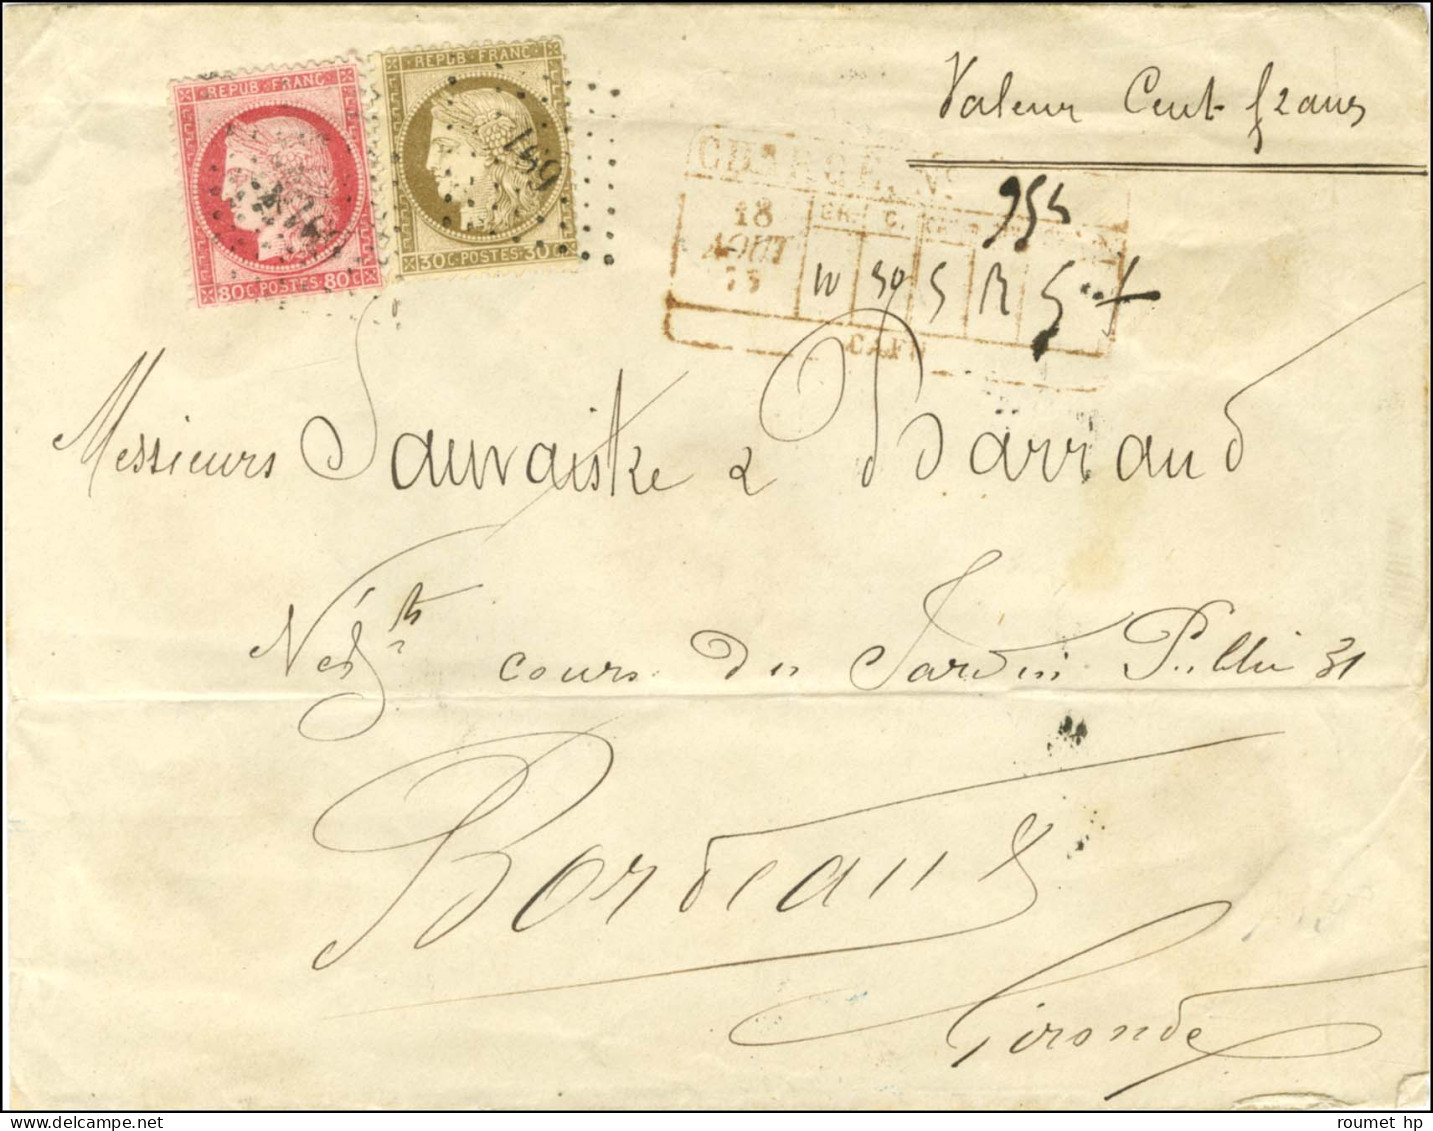 REPUB·FRANC·
80C·POSTES·80C
REPUB·FRANC·
30C·POSTES·30C
Valeur Cent francs
CHARGE. N°
954
18
AOUT
75
GR. C.
10 50 5 R 5
CAFE
Messieurs Sauvaistre & Barraud
Nég.ts cours du Jardin Public 31
Bordeaux
Gironde
roumet hp